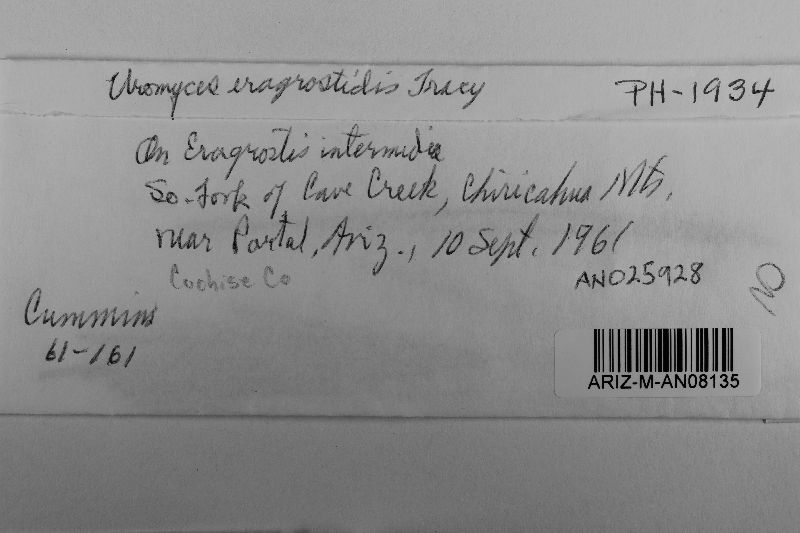 Uromyces eragrostidis Tracy
PH-1934
On Eragrostis intermedia
So. Fork of Cave Creek, Chiricahua Mts.
near Portal, Ariz., 10 Sept. 1961
Cochise Co
AN025928
Cummins
61-161
ARIZ-M-AN08135